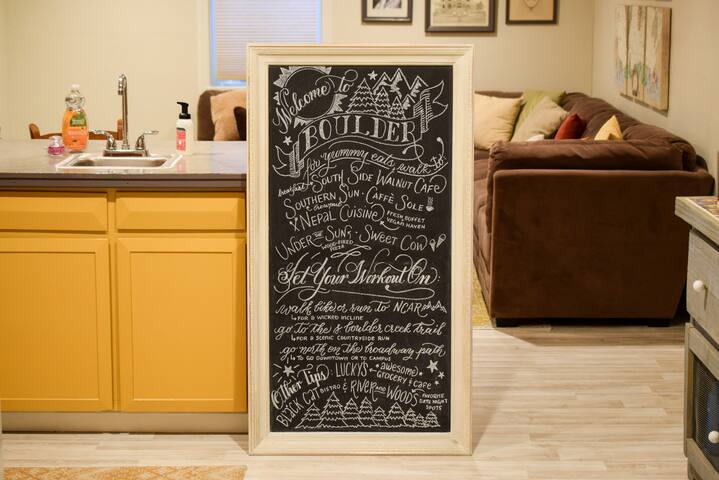 Welcome to
BOULDER
for yummy eats, walk to:
breakfast SOUTH SIDE WALNUT CAFE
SOUTHERN SUN · CAFFÈ SOLE
brewpub
X NEPAL CUISINE FRESH BUFFET
VEGAN HAVEN
UNDER THE SUN · SWEET COW
WOOD-FIRED
PIZZA
Get Your Workout On:
walk bike or run to NCAR
FOR A WICKED INCLINE
go to the s boulder creek trail
FOR A SCENIC COUNTRYSIDE RUN
go north on the broadway path
TO GO DOWNTOWN OR TO CAMPUS
Other Tips: LUCKY'S awesome
GROCERY & CAFE
BLACK CAT BISTRO & RIVER AND WOODS
FAVORITE
DATE NIGHT
SPOTS